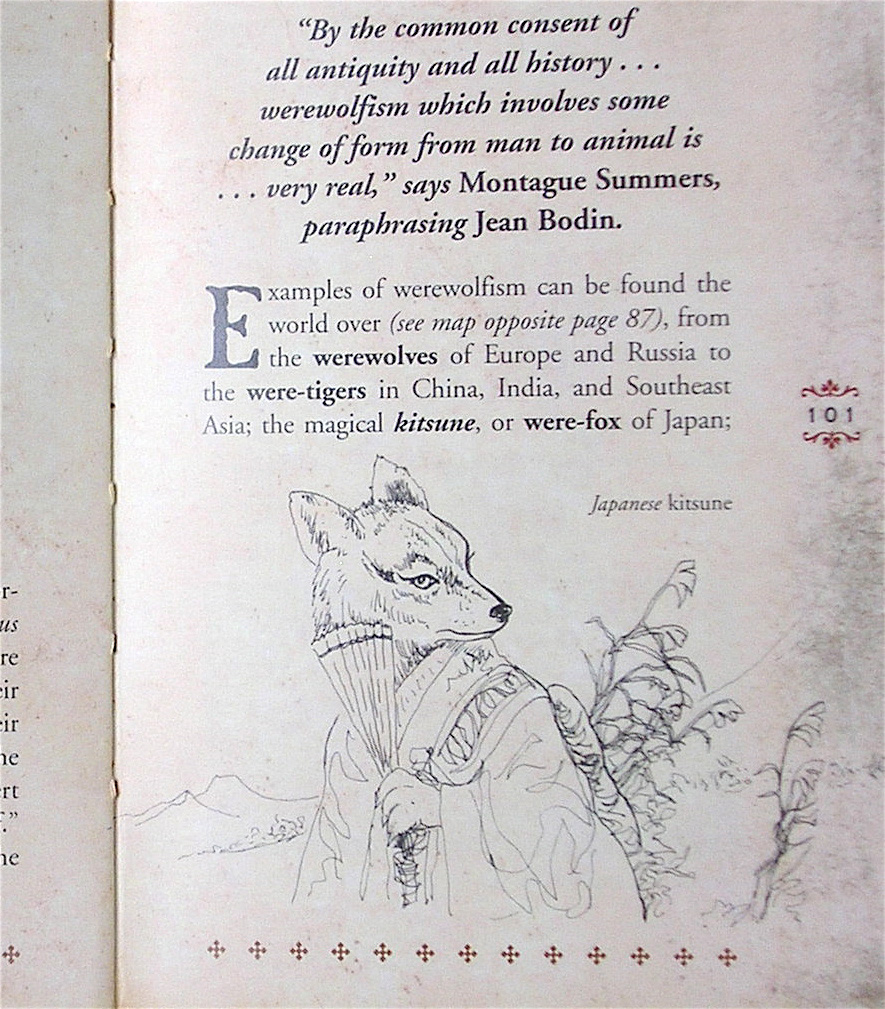 “By the common consent of
all antiquity and all history . . .
werewolfism which involves some
change of form from man to animal is
. . . very real,” says Montague Summers,
paraphrasing Jean Bodin.
Examples of werewolfism can be found the
world over (see map opposite page 87), from
the werewolves of Europe and Russia to
the were-tigers in China, India, and Southeast
Asia; the magical kitsune, or were-fox of Japan;
101
Japanese kitsune